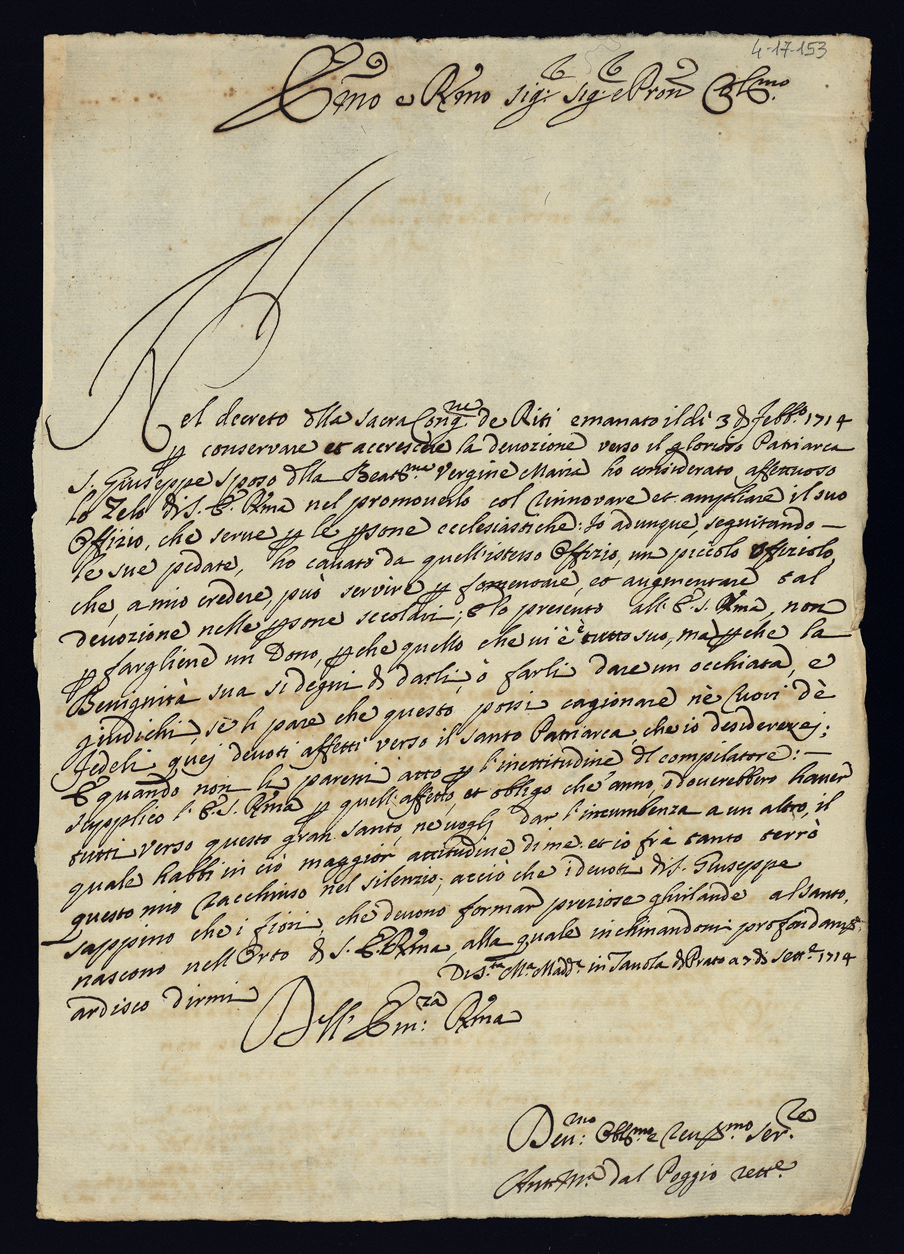 4-17-153
Em̃o e Rm̃o Sig: Sig: e Pron̄ Col.mo
Nel decreto dlla Sacra Cong.ne de Riti emanato il dì 3 d Febb.o 1714
p conservare et accrescere la devozione verso il glorioso Patriarca
S. Giuseppe Sposo dlla Beat.ma Vergine Maria ho considerato affettuoso
lo Zelo di S. E. Rm̃a nel promoverlo col rinnovare et ampliare il suo
Offizio, che serve p le psone ecclesiastiche: Io adunque, seguitando —
le sue pedate, ho cavato da quell'istesso Offizio, un piccolo offiziolo,
che, a mio credere, può servire p fomentare, et augmentare tal
devozione nelle psone secolari; E lo presento all' E. S. Rm̃a, non
p fargliene un Dono, pche quello che vi è è tutto suo, mà pche la
Benignità sua si degni d darli, ò farli dare un occhiata, e
giudichi, sè li pare che questo possi cagionare nè cuori dè
fedeli quej devoti affetti verso il Santo Patriarca che io desidererej;
E quando non li paressi atto p l'inettitudine dl compilatore: —
supplico l' E. S. Rm̃a p quell' affetto, et obligo che anno, ò doverebbero haver
tutti verso questo gran Santo, ne vogli dar l'incumbenza a un altro, il
quale habbi in ciò maggior attitudine di me: et io frà tanto terrò
questo mio racchiuso nel silenzio; acciò che i devoti di S. Giuseppe
sappino che i fiori, che devono formar preziose ghirlande al Santo,
nascono nell Orto di S. E. Rm̃a, alla quale inchinandomi profondam.te
ardisco dirmi
Di S.ta M.a Madd.a in Tavola di Prato a 7 di Sett.e 1714
Dell' Em̄:za Rm̃a
Dev:mo Obbl.mo e Rev.mo Ser.re
Ant. M.a dal Poggio Rett.e